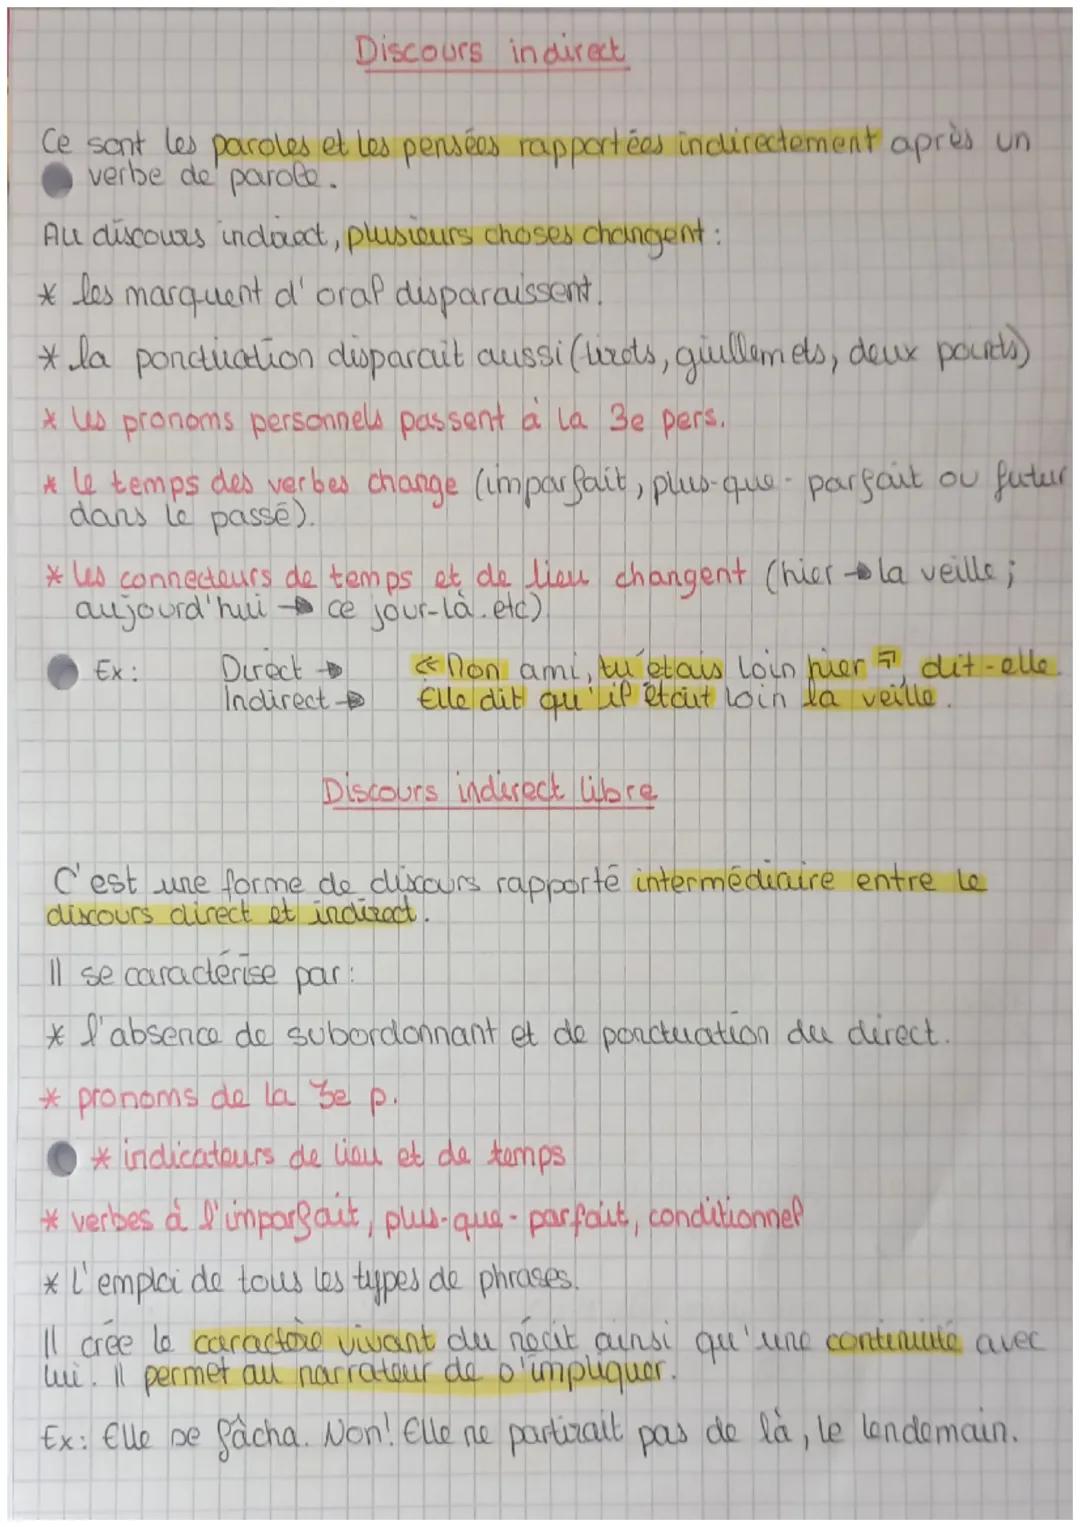 Discours indirect
Ce sont les paroles et les pensées rapportées indirectement après un
verbe de parole.
Au discours indirect, plusieurs choses changent :
* les marquent d'oral disparaissent.
* la ponctuation disparait aussi (tirets, giullemets, deux points)
* les pronoms personnels passent à la 3e pers.
* le temps des verbes change (imparfait, plus-que-parfait ou futur
dans le passé).
* les connecteurs de temps et de lieu changent (hier → la veille ;
aujourd'hui → ce jour-là.etc)
Ex : Direct → « Mon ami, tu étais loin hier », dit-elle.
Indirect → Elle dit qu'il était loin la veille.
Discours indirect libre
C'est une forme de discours rapporté intermédiaire entre le
discours direct et indirect.
Il se caractérise par :
* l'absence de subordonnant et de ponctuation du direct.
* pronoms de la 3e p.
* indicateurs de lieu et de temps
* verbes à l'imparfait, plus-que-parfait, conditionnel
* L'emploi de tous les types de phrases.
Il crée le caractère vivant du récit ainsi qu'une continuité avec
lui. Il permet au narrateur de s'impliquer.
Ex : Elle se fâcha. Non! Elle ne partirait pas de là, le lendemain.